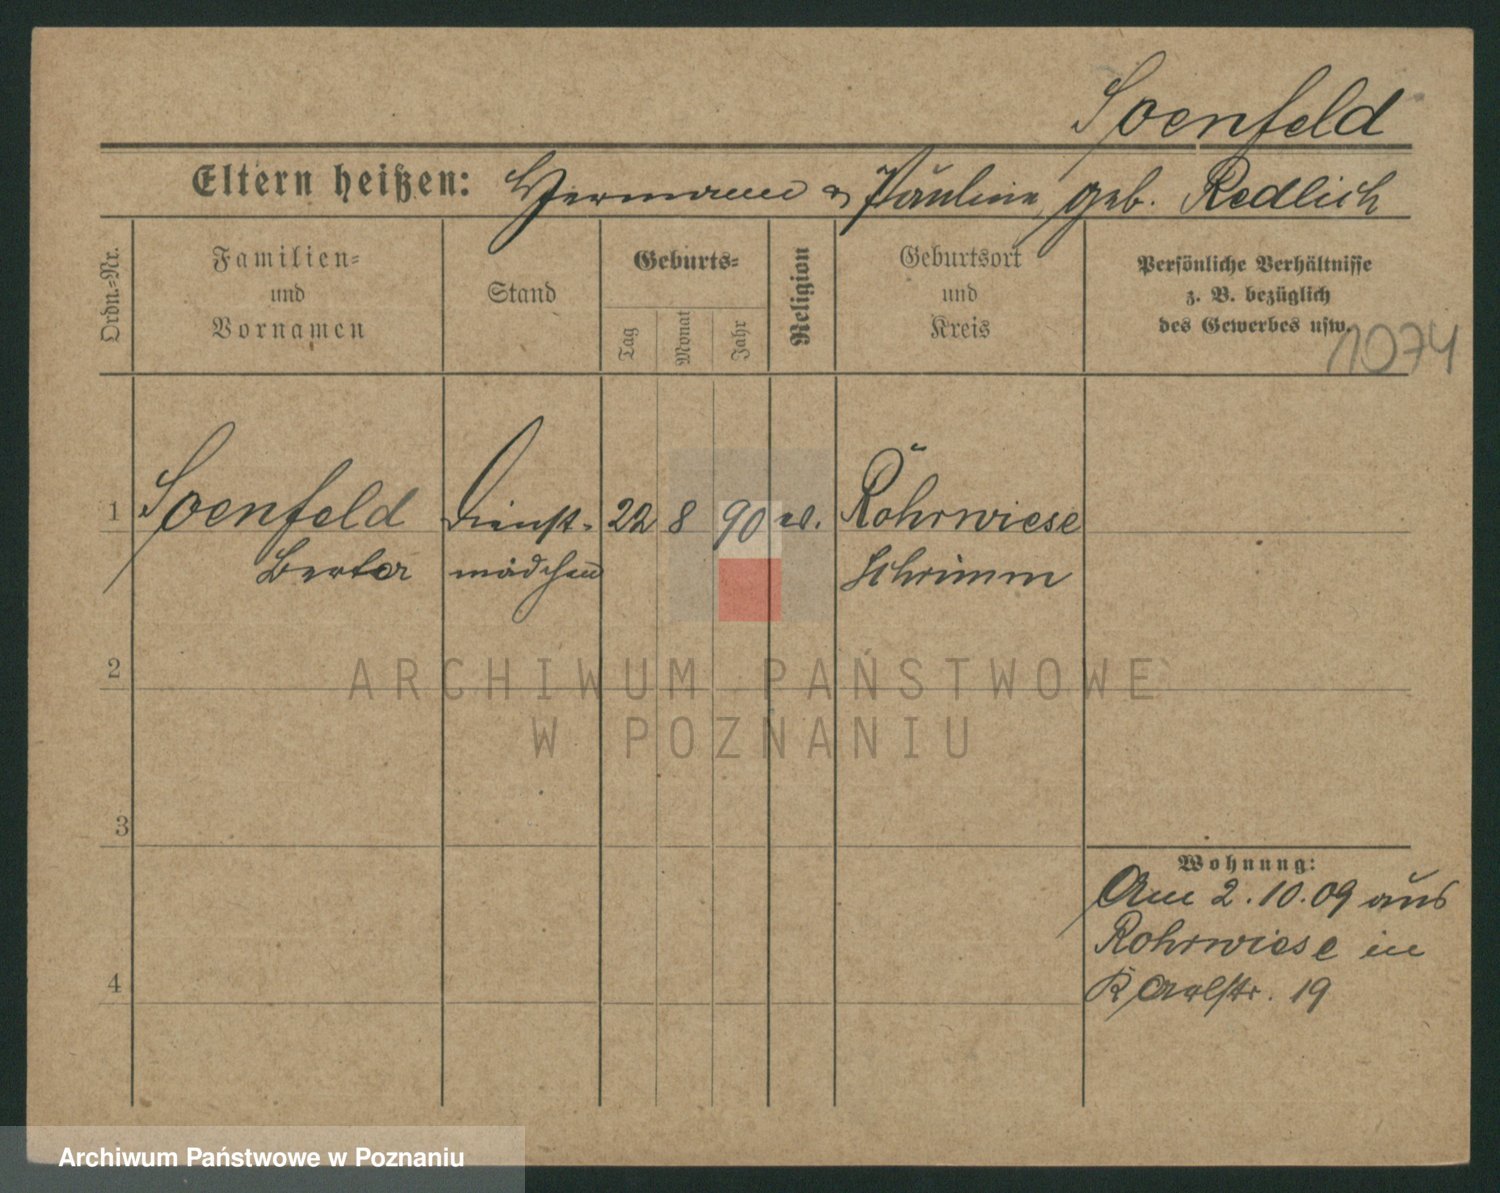 Soenfeld
Eltern heißen: Hermann & Pauline, geb. Redlich
Ordn.-Nr.
Familien-
und
Vornamen
Stand
Geburts-
Tag
Monat
Jahr
Religion
Geburtsort
und
Kreis
Persönliche Verhältnisse
z. B. bezüglich
des Gewerbes usw.
1074
1 Soenfeld Dienst- 22 8 90 ev. Rohrwiese
Berta mädchen Schrimm
2
ARCHIWUM PAŃSTWOWE
W POZNANIU
3
Wohnung:
Am 2.10.09 aus
Rohrwiese in
4
Karlstr. 19
Archiwum Państwowe w Poznaniu